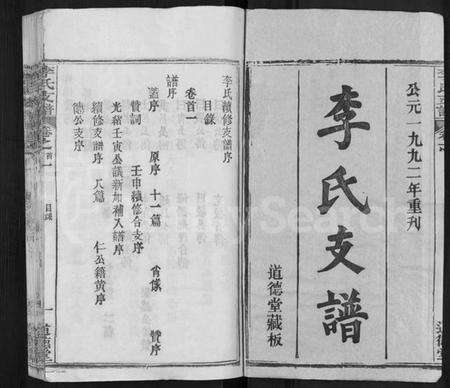 公元一九九二年重刊
李氏支譜
道德堂藏板
李氏續修支譜序
目錄
卷首一
譜序
蓝序 原序 十一篇 肖像 贊序
贊詞 壬申續修合支序
光緒壬寅公議新加補入譜序
續修支譜序 八篇 仁公籍黄序
德公支序
李氏支譜
卷之首一
目錄
一
道德堂